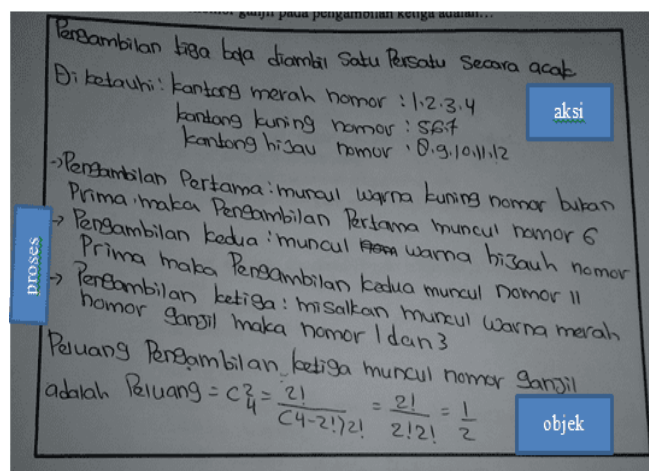 nomor ganjil pada pengambilan ketiga adalah...
Pengambilan tiga bola diambil satu Persatu secara acak
Diketauhi: kantong merah nomor : 1.2.3.4
aksi
kantong kuning nomor : 567
kantong hijau nomor : 8.9.10.11.12
-> Pengambilan Pertama : muncul warna kuning nomor bukan
Prima, maka Pengambilan Pertama muncul nomor 6
-> Pengambilan kedua : muncul warna hijauh nomor
Prima maka Pengambilan kedua muncul nomor 11
proses
-> Pengambilan ketiga : misalkan muncul warna merah
nomor ganjil maka nomor 1 dan 3
Peluang Pengambilan ketiga muncul nomor ganjil
adalah Peluang = C 2/4 = 2!/(4-2!)2! = 2!/2!2! = 1/2
objek